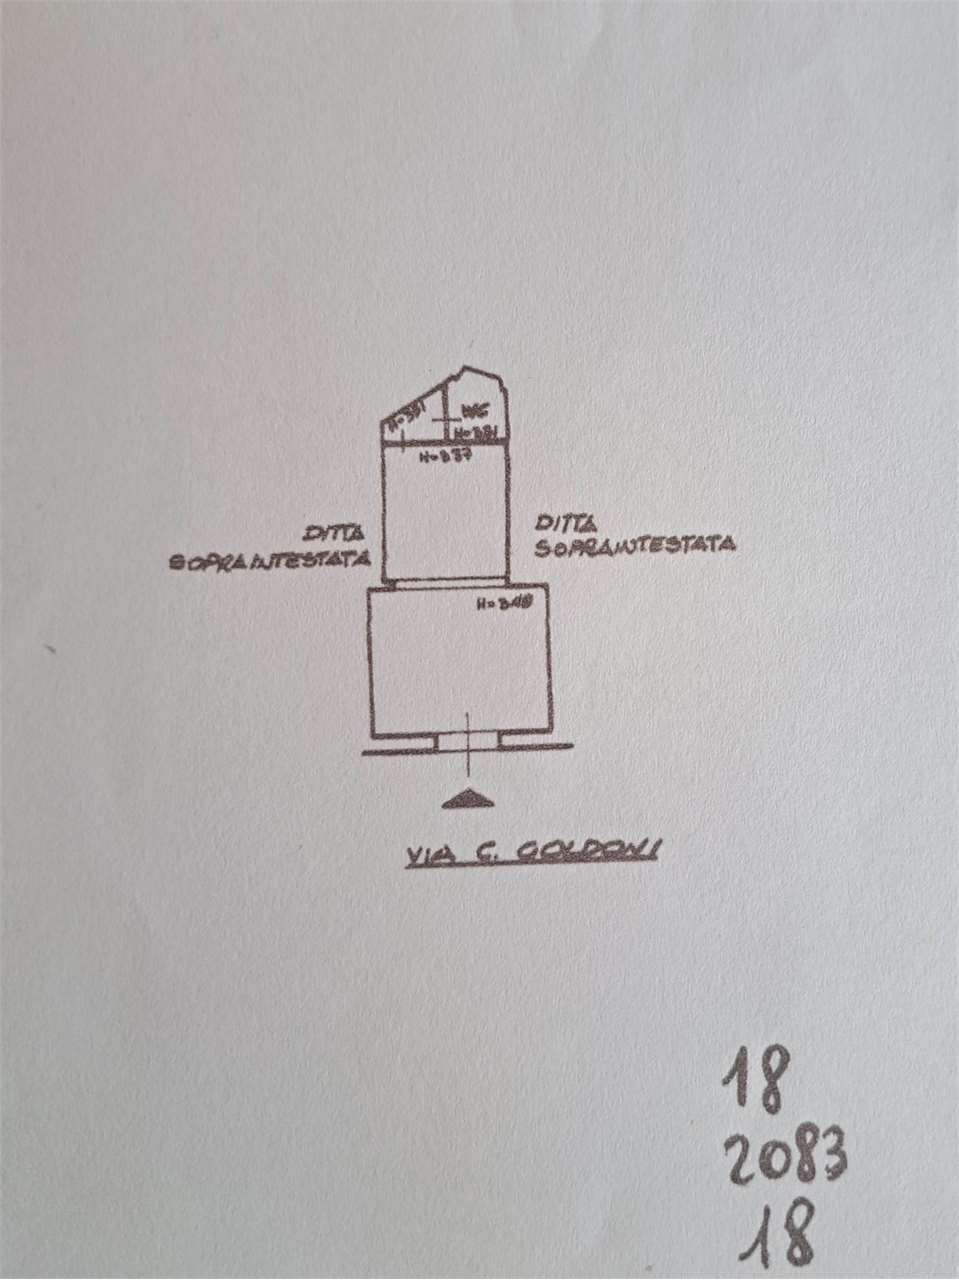 H=331
WC
H=331
H=337
DITTA
SOPRAINTESTATA
DITTA
SOPRAINTESTATA
VIA C. GOLDONI
18
2083
18